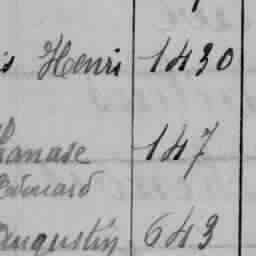 s Henri 1430
hanase 147
Edouard
Augustin 643